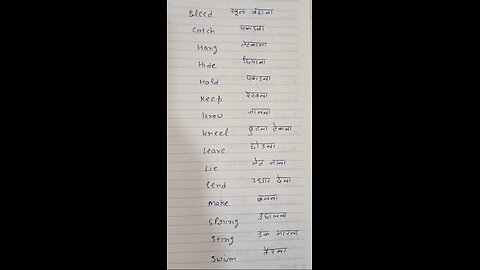 Bleed खून बहाना
Catch पकडना
Hang लटकाना
Hide छिपाना
Hold पकडना
Keep रखना
Know जानना
Kneel घुटना टेकना
Leave छोडना
Lie लेट जाना
lend उधार देना
make बनना
Spring उछालना
Sting डंक मारना
Swim तैरना